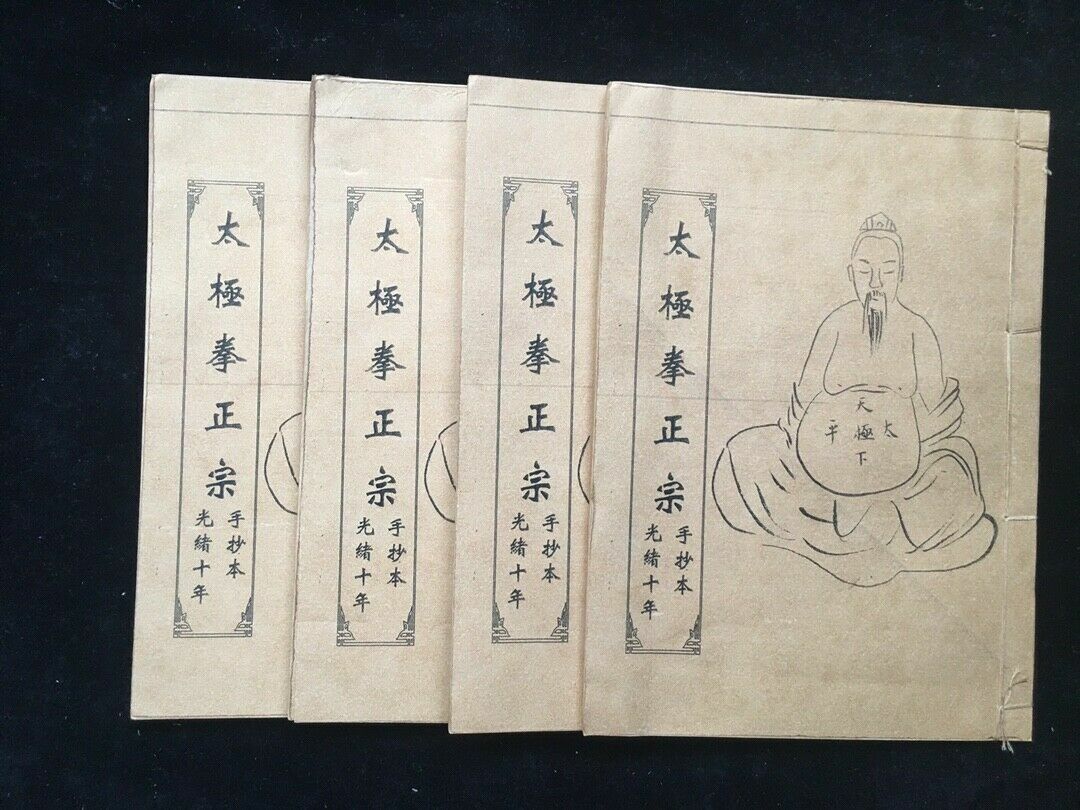 太極拳正宗
手抄本
光緒十年
太極拳正宗
手抄本
光緒十年
太極拳正宗
手抄本
光緒十年
太極拳正宗
手抄本
光緒十年
天
太極平
下